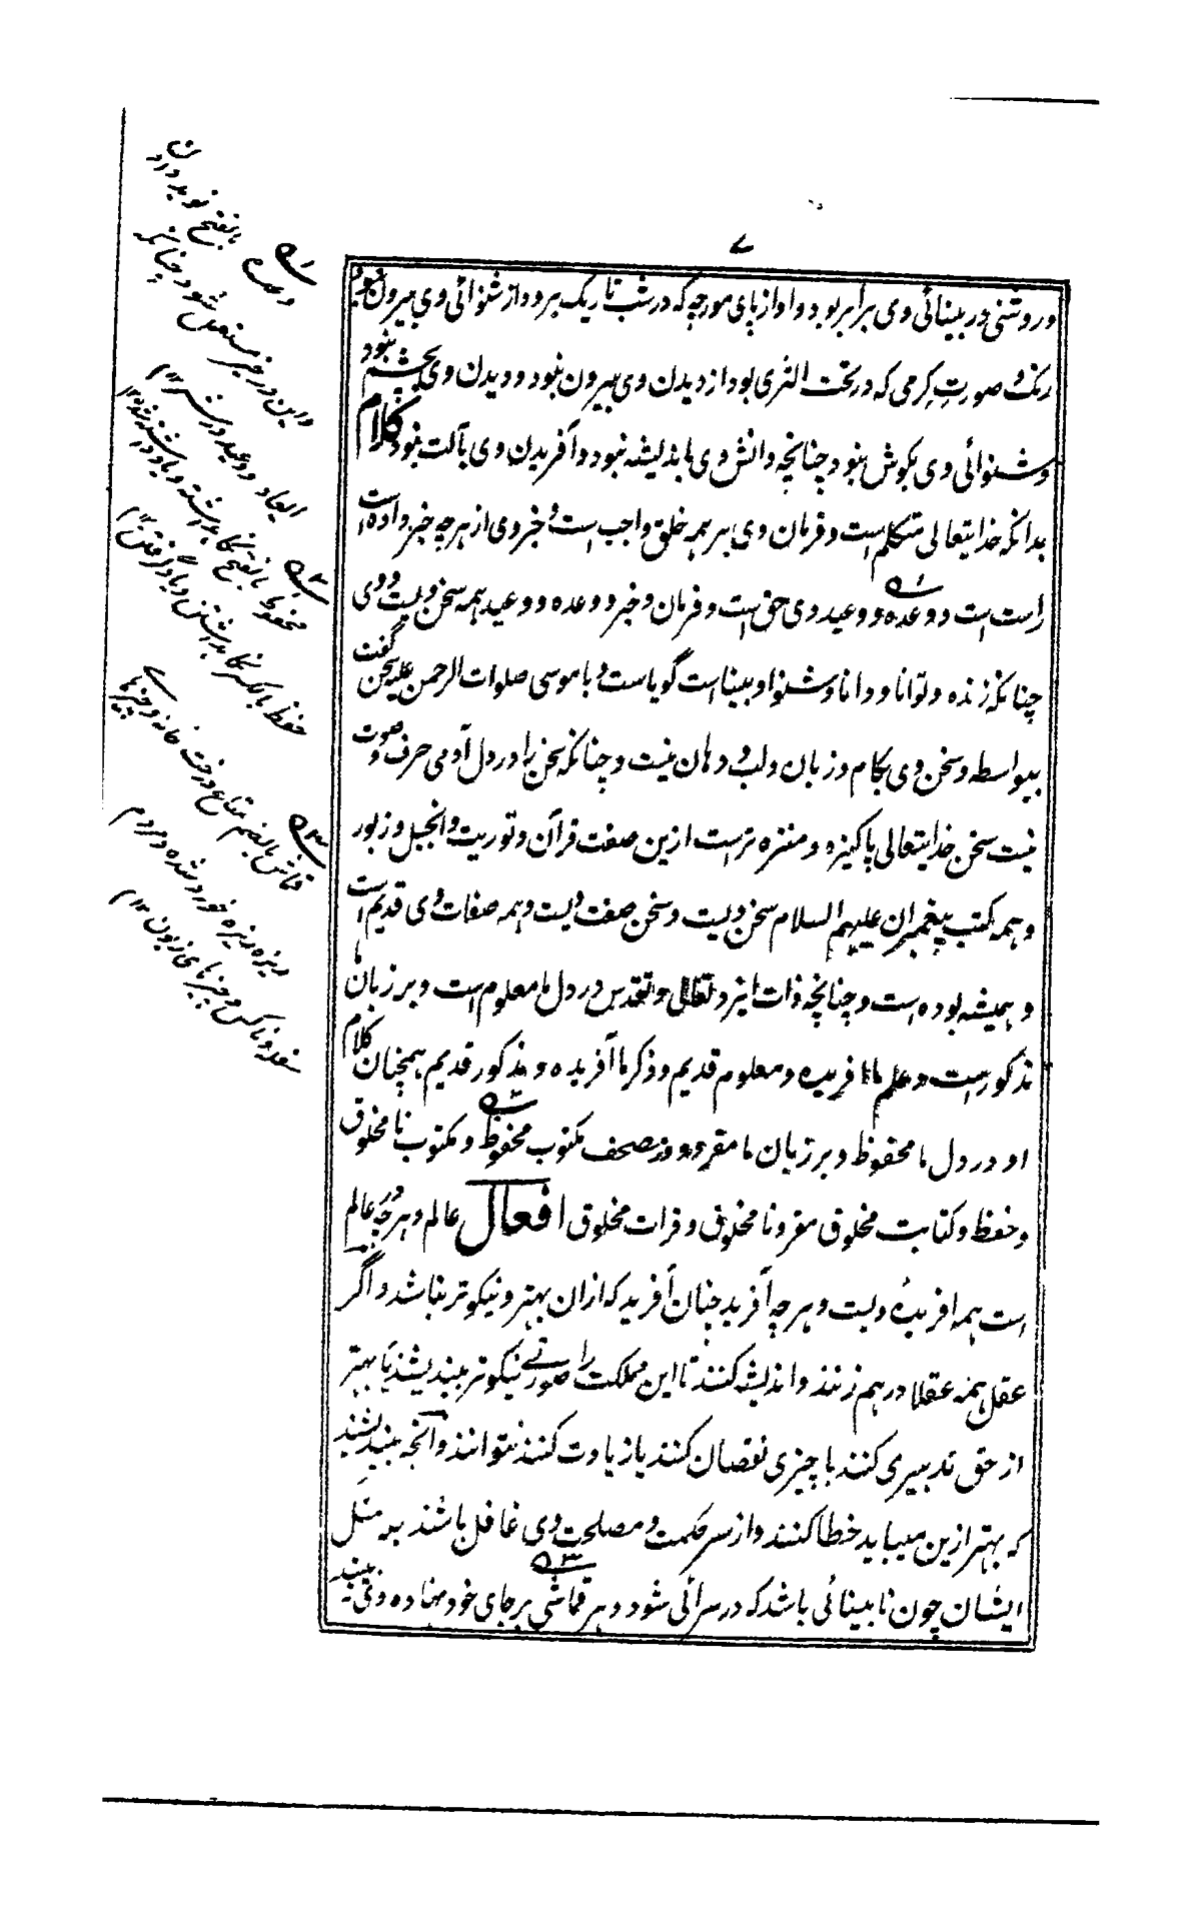 ۷
و روشنی در بینائی وی برابر بود و اواز پای مورچه که در شب تاریک برود از شنوائی وی بیرون نبود و
رنگ و صورت کرمی که در تحت الثری بود از دیدن وی بیرون نبود و دیدن وی بچشم نبود
و شنوائی وی بگوش نبود چنانچه دانش وی باندیشه نبود و آفریدن وی بآلت نبود کلام
بدانکه خدایتعالی متکلم است و فرمان وی بر همه خلق واجب است و خبر وی از هر چه خبر داده است
راست است و وعده و وعید وی حق است و فرمان و خبر و وعده و وعید همه سخن ویست و وی
چنانکه زنده و توانا و دانا و شنوا و بیناست گویاست و با موسی صلوات الرحمن علیه سخن گفت
بیواسطه و سخن وی بکام و زبان و لب و دهان نیست و چنانکه سخن را در دل آدمی حرف و صوت
نیست سخن خدایتعالی پاکیزه و منزه تر است ازین صفت قرآن و توریت و انجیل و زبور
و همه کتب پیغمبران علیهم السلام سخن ویست و سخن صفت ویست و همه صفات وی قدیم است
و همیشه بوده است و چنانچه ذات ایزد تعالی و تقدس در دل ما معلوم است و بر زبان ما
مذکور است و علم ما آفریده و معلوم قدیم و ذکر ما آفریده و مذکور قدیم همچنان کلام
او در دل ما محفوظ و بر زبان ما مقرو و در مصحف مکتوب محفوظ و مکتوب نامخلوق
و حفظ و کتابت مخلوق مقرو نامخلوق و قرات مخلوق افعال عالم و هر چه در عالم
است همه افریدۀ ویست و هر چه آفرید چنان آفرید که ازان بهتر و نیکوتر نباشد و اگر
عقل همه عقلا در هم زنند و اندیشه کنند تا این مملکت را صورتے نیکوتر بیندیشند یا بهتر
از حق تدبیری کنند یا چیزی نقصان کنند یا زیادت کنند نتوانند و آنچه بیندیشند
که بهتر ازین میباید خطا کنند و از سر حکمت و مصلحت وی غافل باشند به مثل
ایشان چون نابینائی باشد که در سرائی شود و هر قماشی بر جای خود نهاده و وی نبیند
ه۱ وعده بالفتح نوید دادن
و این در خیر مستعمل شود چنانکه
ایعاد و وعید در شر ۱۲
ه۲ محفوظ بالفتح نگاهداشته و یاد داشته شده ۱۲
حفظ بالکسر نگاهداشتن و یاد گرفتن ۱۲
ه۳ قماش بالضم متاع و رخت خانه و چیزهاے
ریزه ریزه خورد شده و مردم
سفله و ناکس و چیزهای زبون ۱۲